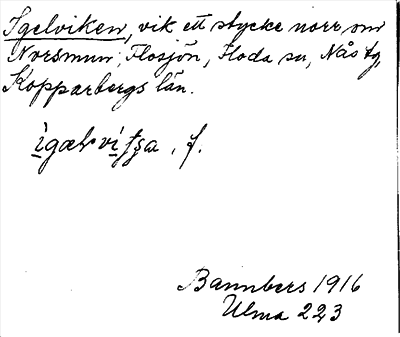 Igelviken, vik ett stycke norr om
Norsmun; Flosjön, Floda sn, Nås tg,
Kopparbergs län.
ìgælvitʃa, f.
Bannbers 1916
Ulma 223